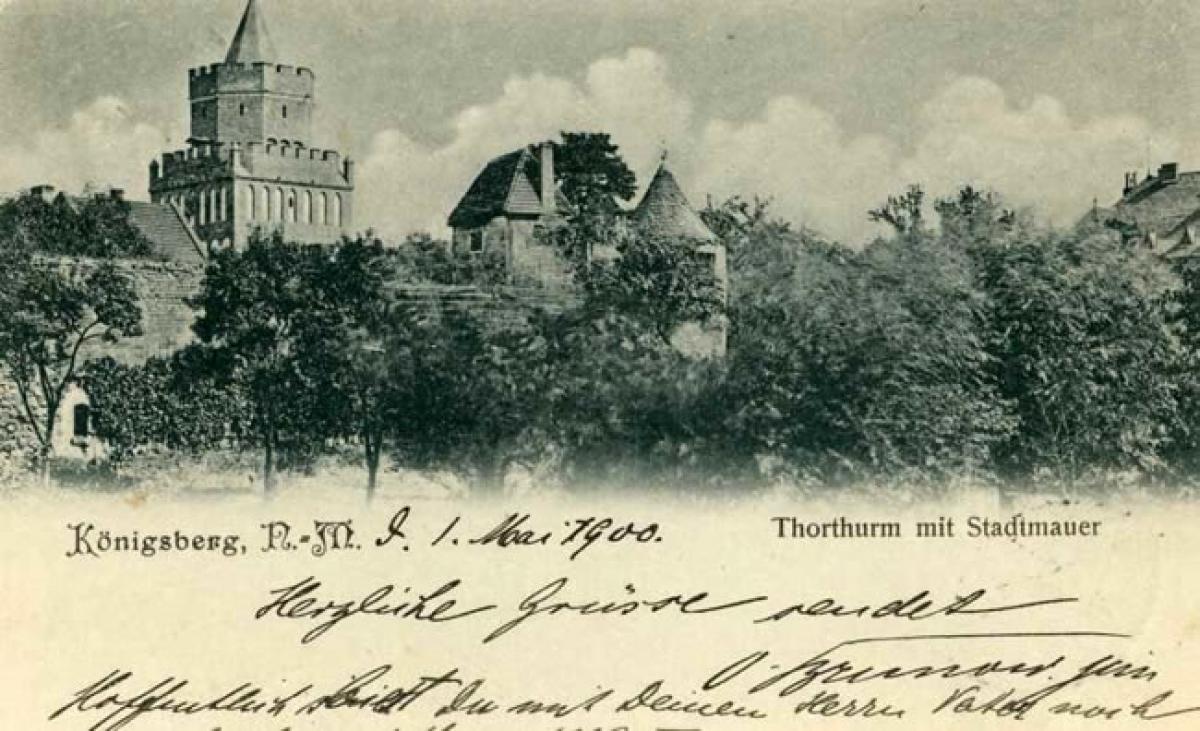 Königsberg, N.-M. d. 1. Mai 1900.
Thorthurm mit Stadtmauer
Herzliche Grüsse sendet
O. Brunow jun
Hoffentlich bist Du mit Deinem Herrn Vater noch